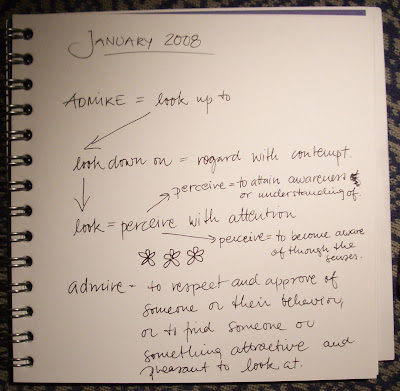 JANUARY 2008
ADMIRE = look up to
look down on = regard with contempt.
perceive = to attain awareness
or understanding of.
look = perceive with attention
perceive = to become aware
of through the
senses.
admire = to respect and approve of
someone or their behavior,
or to find someone or
something attractive and
pleasant to look at.